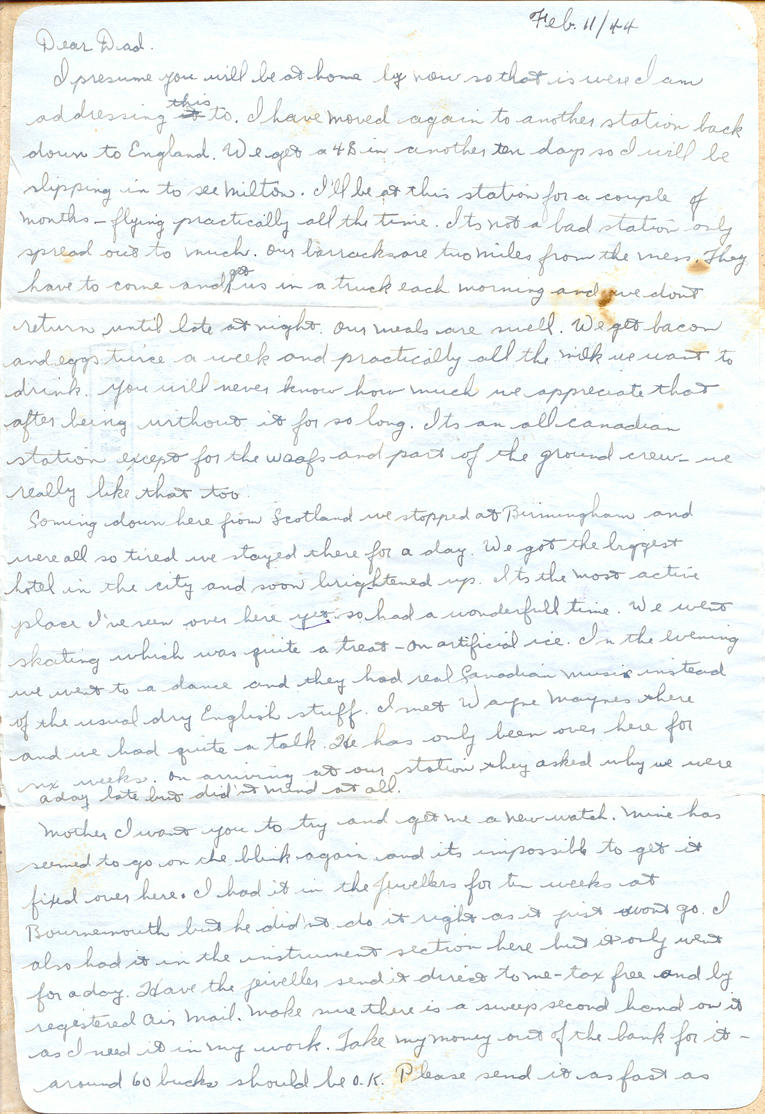 Feb. 11/44
Dear Dad.
I presume you will be at home by now so that is were I am
addressing this to. I have moved again to another station back
down to England. We get a 48 in another ten days so I will be
slipping in to see Milton. I'll be at this station for a couple of
months - flying practically all the time. Its not a bad station only
spread out to much. Our barracks are two miles from the mess. They
have to come and get us in a truck each morning and we dont
return until late at night. Our meals are swell. We get bacon
and eggs twice a week and practically all the milk we want to
drink. You will never know how much we appreciate that
after being without it for so long. Its an all canadian
station except for the waafs and part of the ground crew - we
really like that too.
Coming down here from Scotland we stopped at Birmingham and
were all so tired we stayed there for a day. We got the biggest
hotel in the city and soon brightened up. Its the most active
place I've seen over here yet so had a wonderfull time. We went
skating which was quite a treat - on artificial ice. In the evening
we went to a dance and they had real Canadian music instead
of the usual dry English stuff. I met Wayne Maynes there
and we had quite a talk. He has only been over here for
six weeks. On arriving at our station they asked why we were
a day late but did'nt mind at all.
Mother I want you to try and get me a new watch. Mine has
seemed to go on the blink again and its impossible to get it
fixed over here. I had it in the jewellers for ten weeks at
Bournemouth but he did'nt do it right as it just wont go. I
also had it in the instrument section here but it only went
for a day. Have the jeweller send it direct to me - tax free and by
registered Air Mail. Make sure there is a sweep second hand on it
as I need it in my work. Take my money out of the bank for it -
around 60 bucks should be O.K. Please send it as fast as